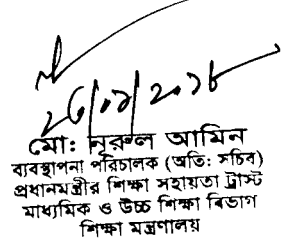 মো: নূরুল আমিন
ব্যবস্থাপনা পরিচালক (অতি: সচিব)
প্রধানমন্ত্রীর শিক্ষা সহায়তা ট্রাস্ট
মাধ্যমিক ও উচ্চ শিক্ষা বিভাগ
শিক্ষা মন্ত্রণালয়